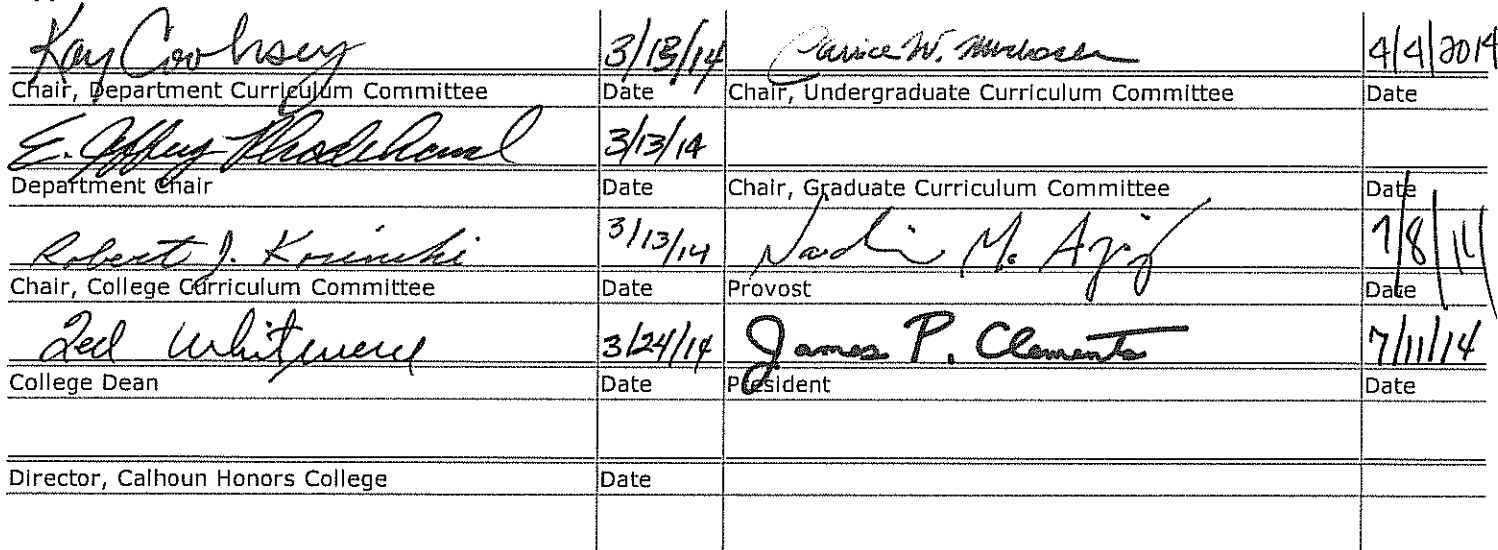 Kay Cooksey 3/13/14 Janice W. Murdoch 4/4/2014
Chair, Department Curriculum Committee Date Chair, Undergraduate Curriculum Committee Date
E. Jeffrey Rhodehamel 3/13/14
Department Chair Date Chair, Graduate Curriculum Committee Date
Robert J. Kosinski 3/13/14 M. Aziz 7/8/14
Chair, College Curriculum Committee Date Provost Date
Ted Whitwell 3/24/14 James P. Clements 7/11/14
College Dean Date President Date
Director, Calhoun Honors College Date